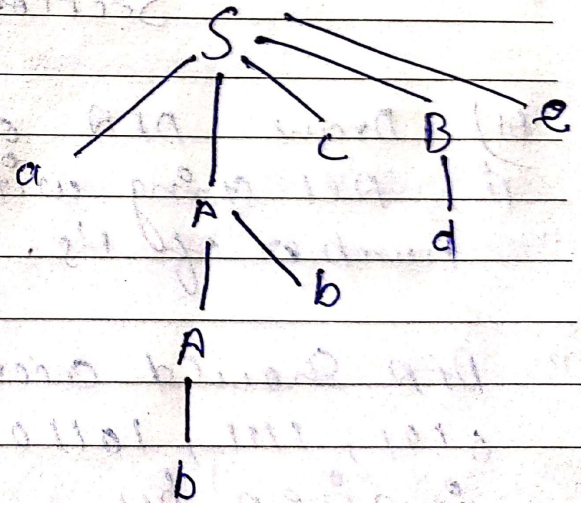 S
a A c B e
A b d
b